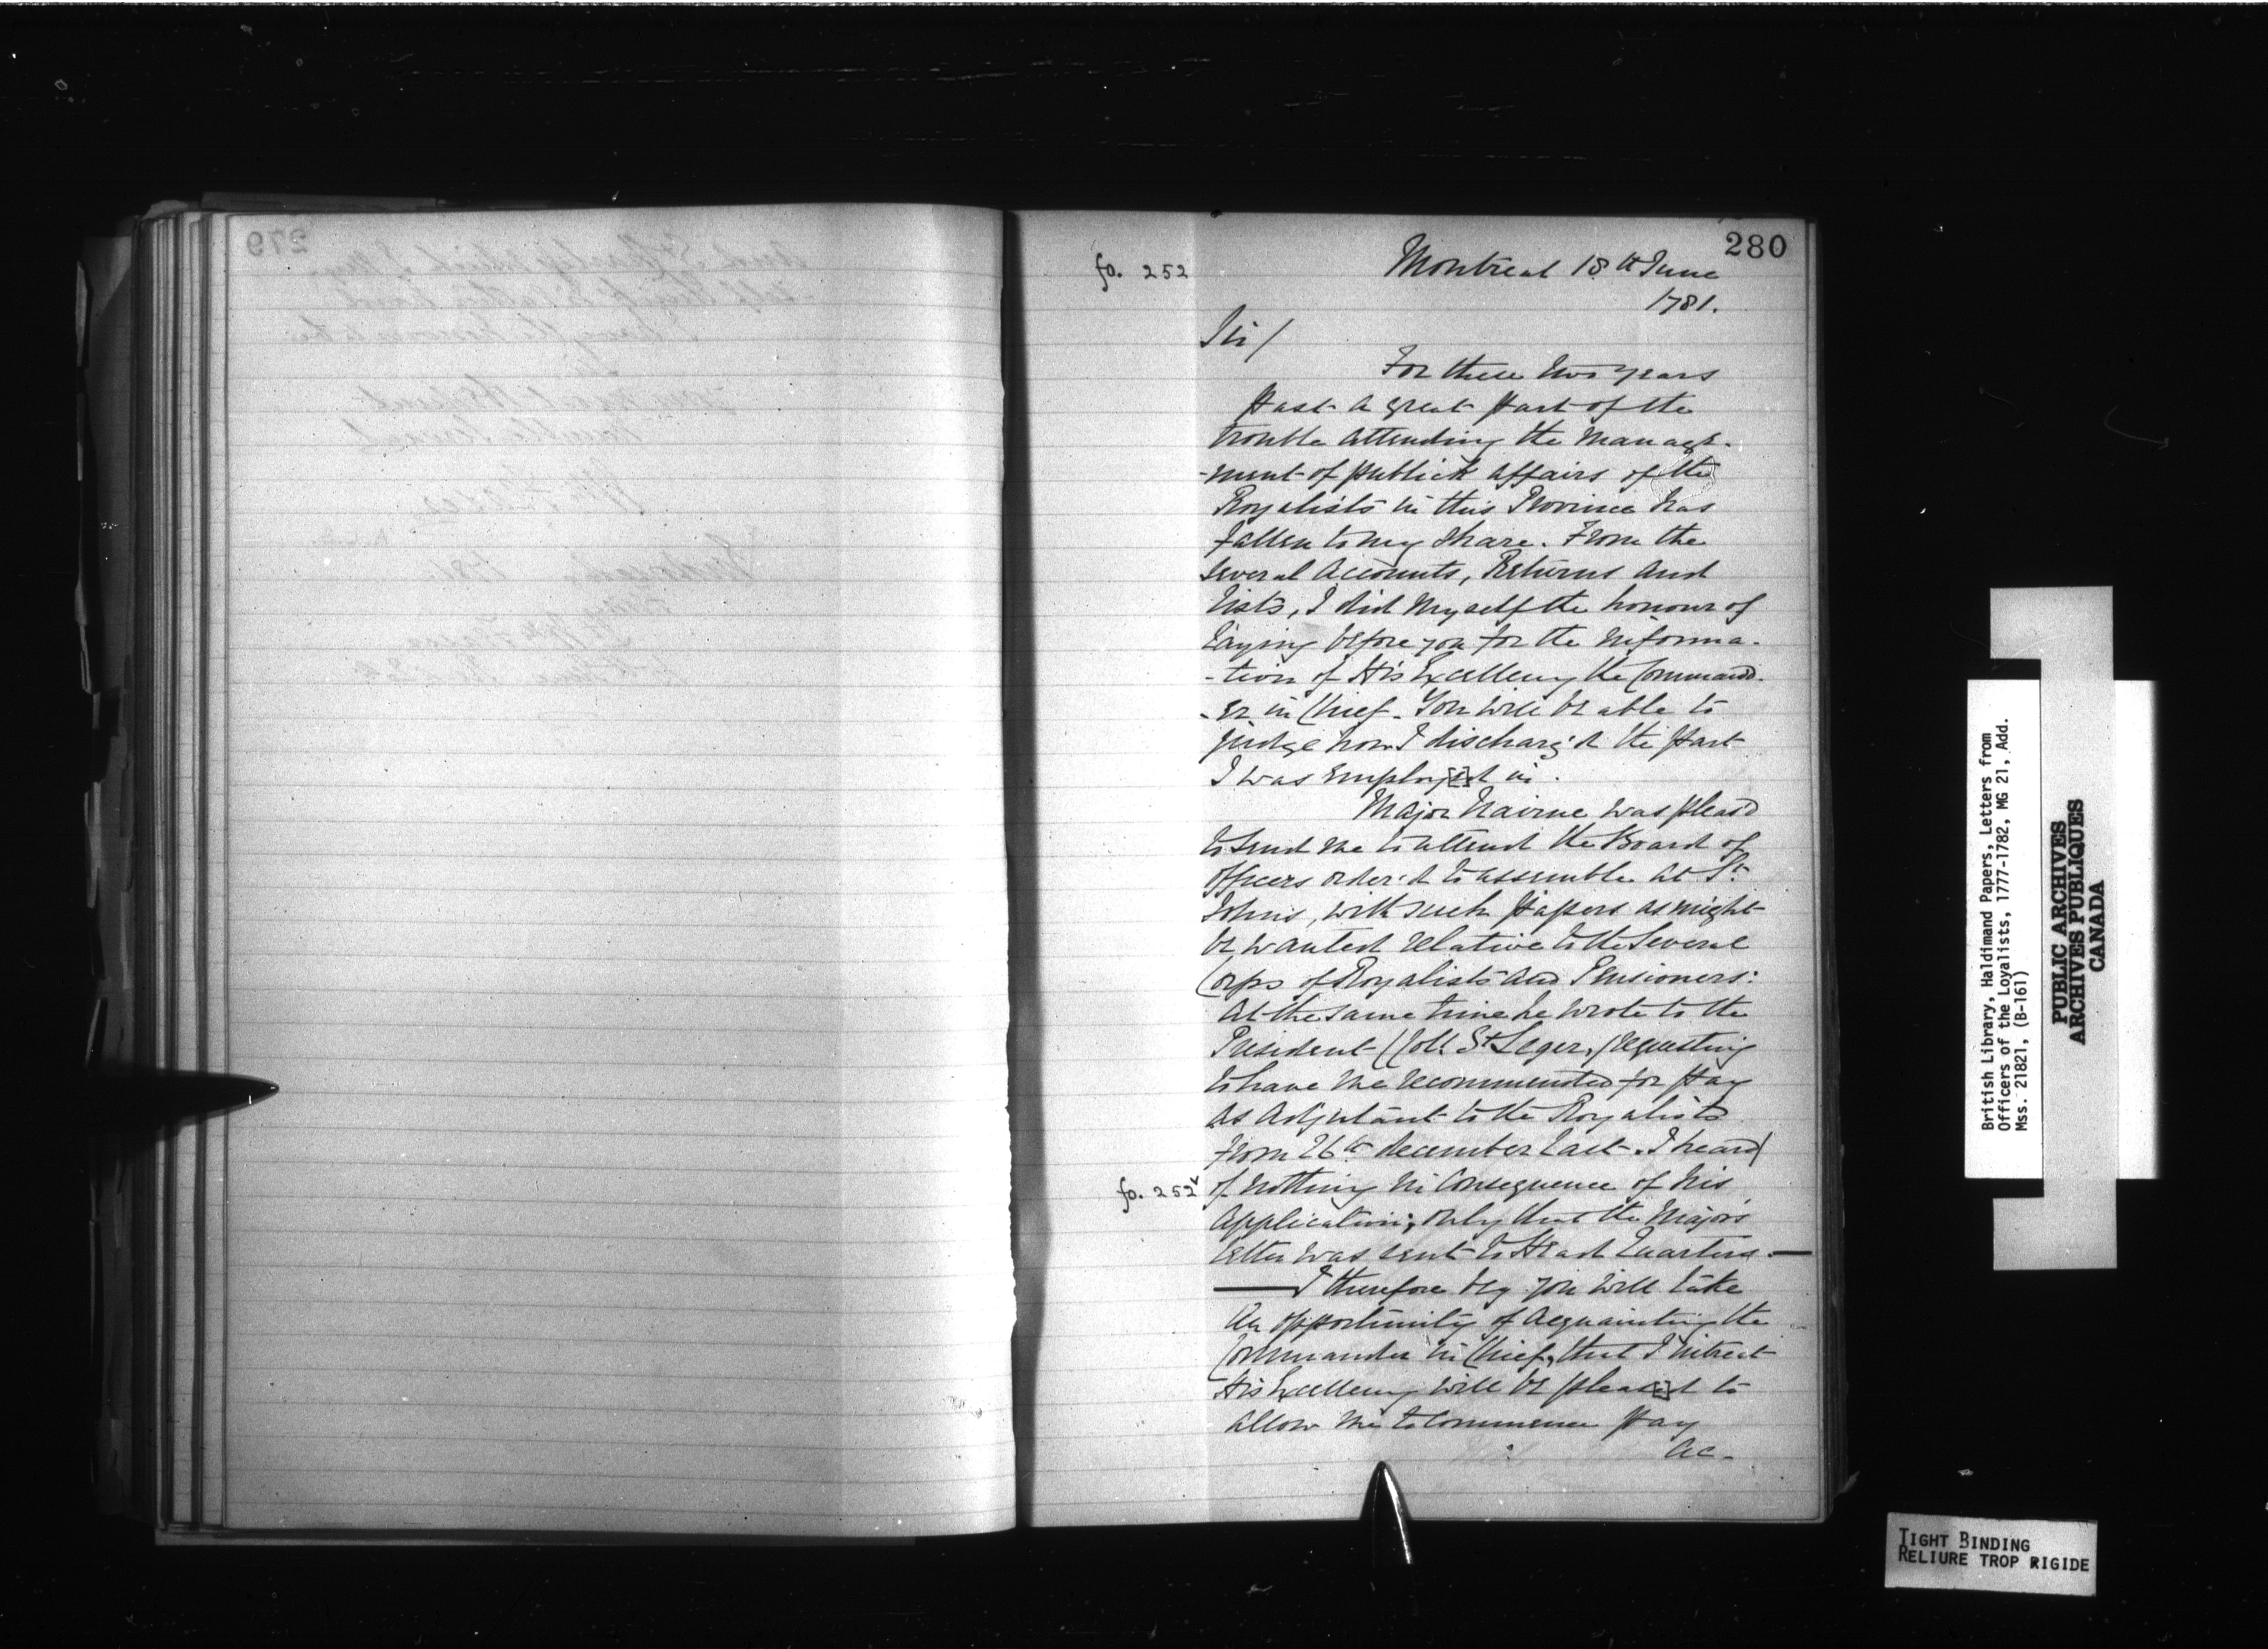 280
fo. 252
Montreal 18th June
1781.
Sir/
For these two years
past a great part of the
trouble attending the manage-
-ment of publick affairs of the
Royalists in this Province has
fallen to my share. From the
several accounts, Returns and
lists, I did myself the honour of
laying before you for the informa-
-tion of His Excellency the Command-
-er in Chief. You will be able to
judge how I discharg'd the part
I was employ[e]d in.
Major Nairne was pleas'd
to send me to attend the Board of
officers order'd to assemble at St
Johns, with such papers as might
be wanted relative to the several
Corps of Royalists and Pensioners:
at the same time he wrote to the
President (Coll. St Leger,) requesting
to have me recommended for pay
as adjutant to the Royalists
from 26th december last. I heard
fo. 252v of nothing in consequence of his
application; only that the Majors
letter was sent to Head Quarters.—
—I therefore beg you will take
an opportunity of acquainting the
Commander in Chief, that I intreat
His Excellency will be pleas[e]d to
allow me to commence pay
as-
British Library, Haldimand Papers, Letters from
Officers of the Loyalists, 1777-1782, MG 21, Add.
Mss. 21821, (B-161)
PUBLIC ARCHIVES
ARCHIVES PUBLIQUES
CANADA
TIGHT BINDING
RELIURE TROP RIGIDE